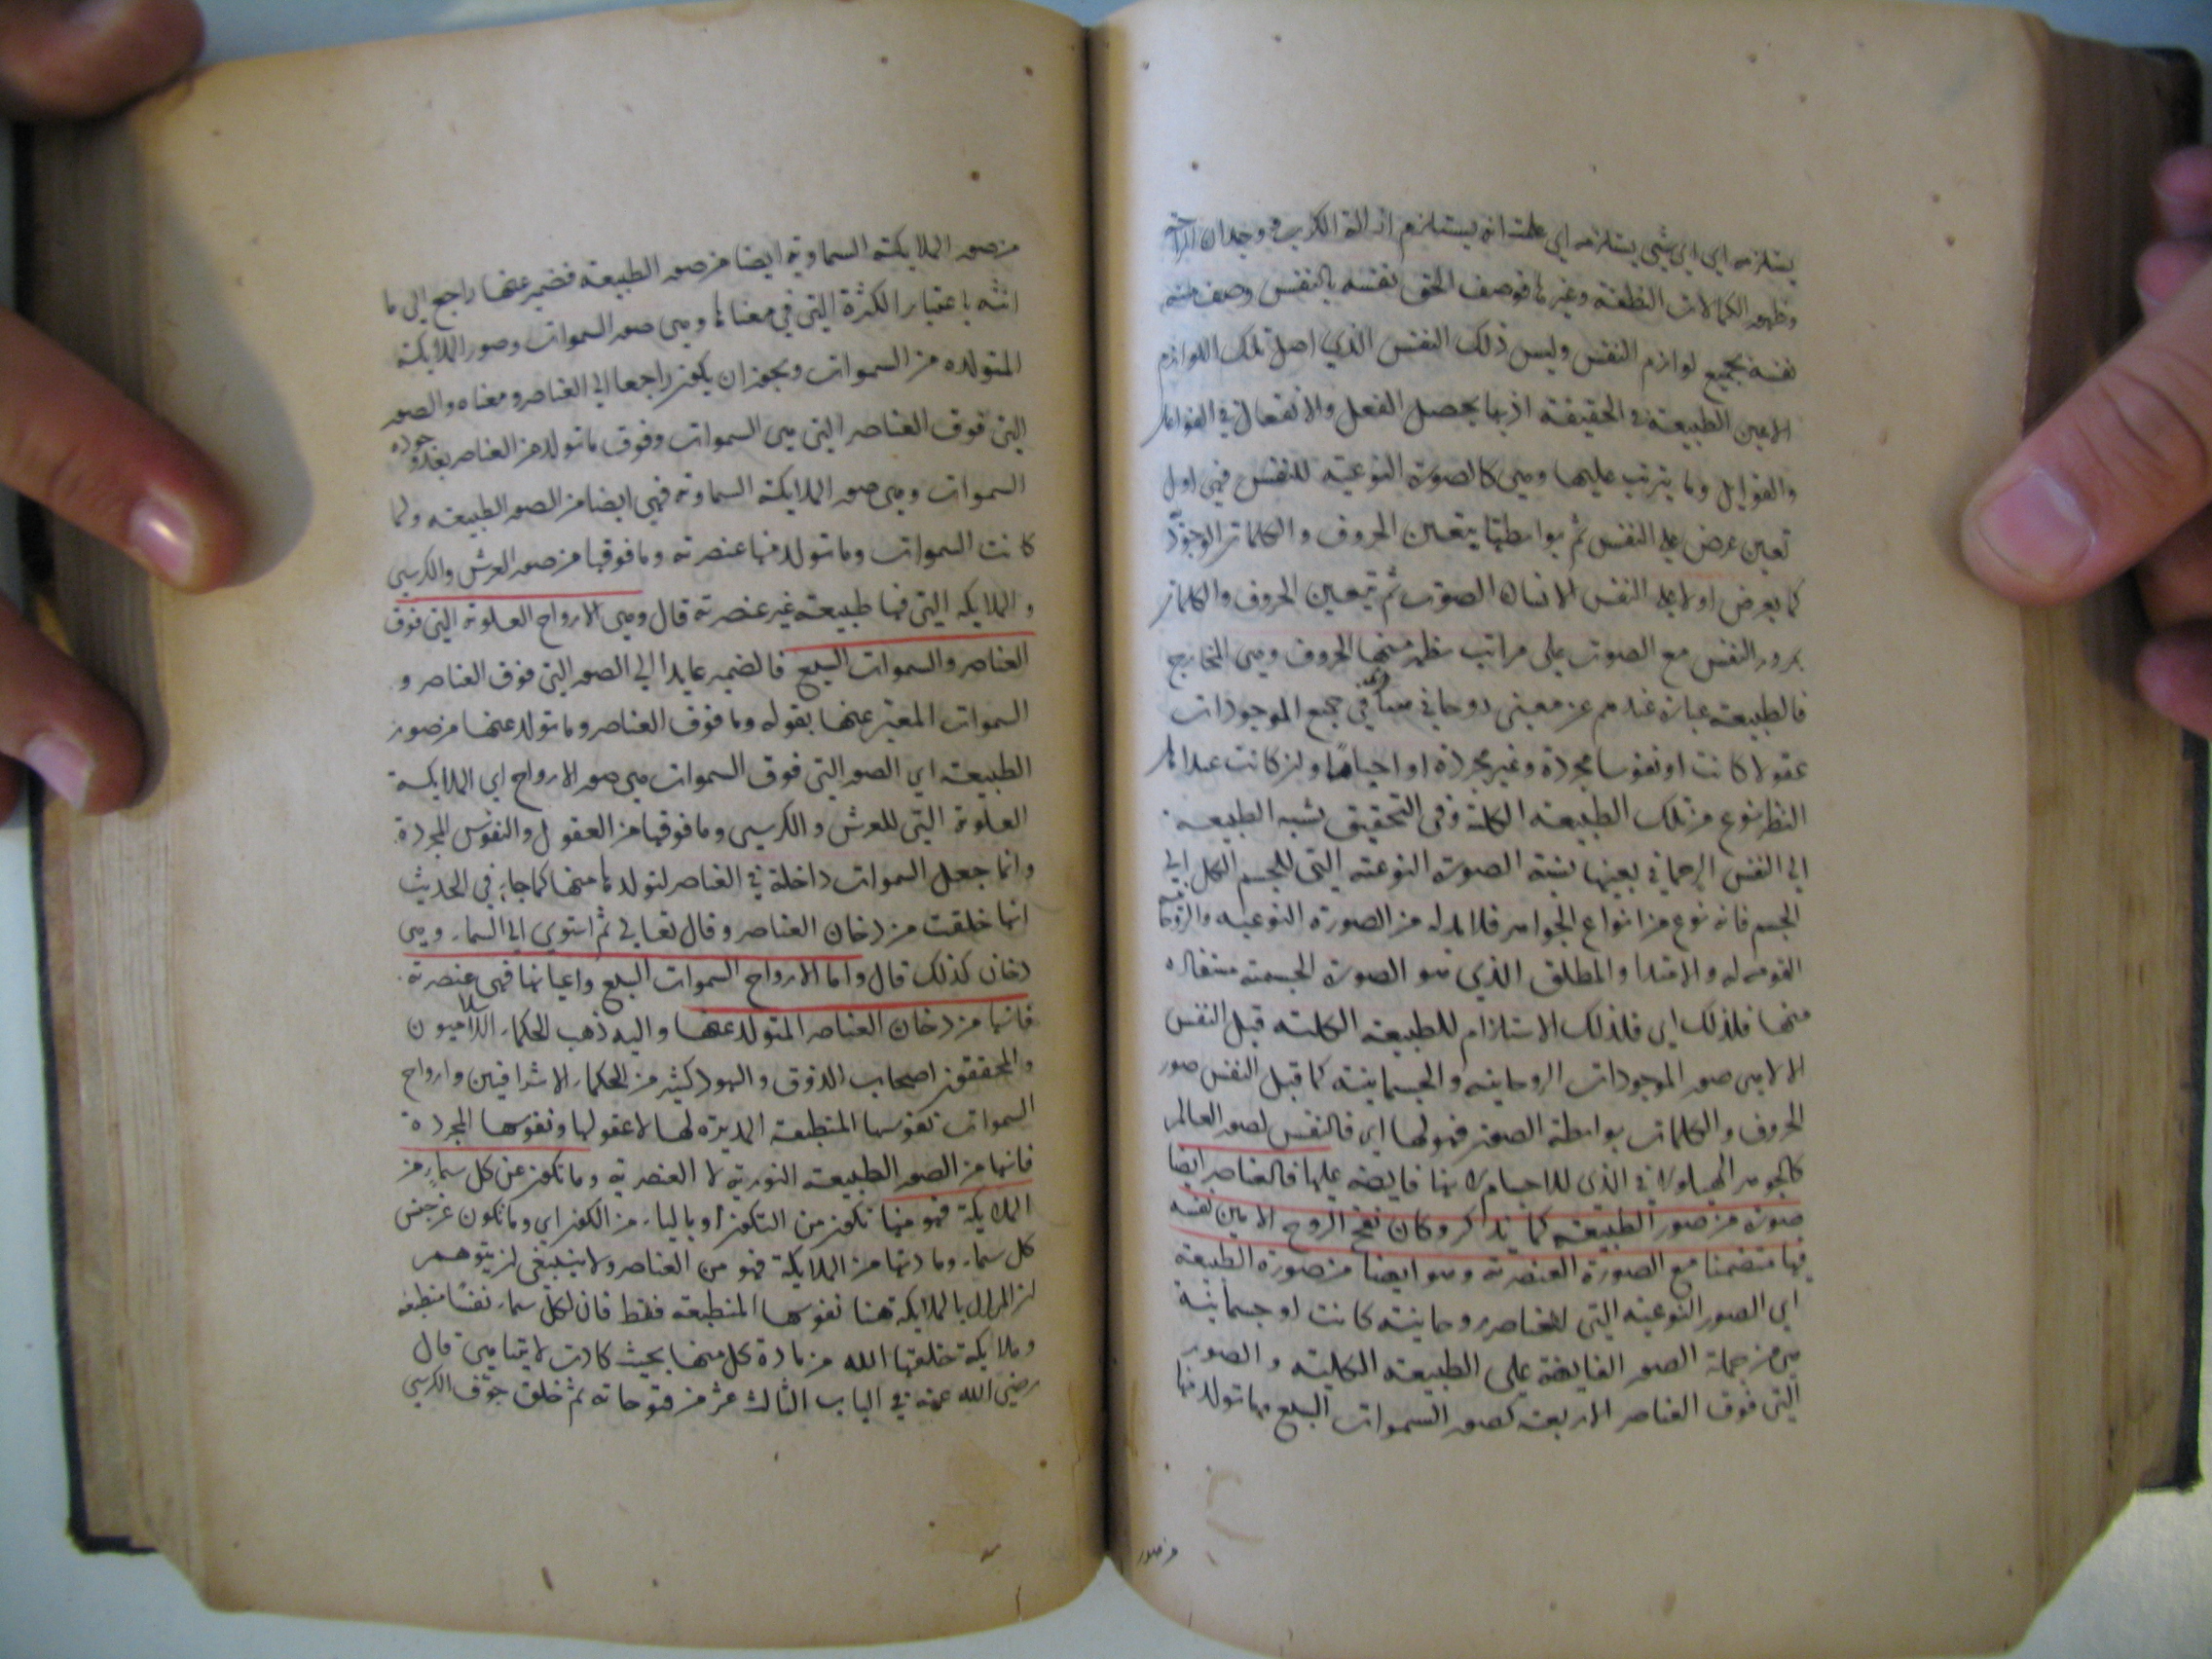 يستلزمه اي اي شي يستلزمه اي علمت انه يستلزم ازالة الكرب و وجدان الراحة
وظهور الكمالات النطقية وغيرها فوصف الحق نفسه بالنفس وصف منه
نفسه بجميع لوازم النفس وليس ذلك النفس الذي اصل تلك اللوازم
الا عين الطبيعة في الحقيقة اذ بها يحصل الفعل والانفعال في الفواعل
والقوابل وما يترتب عليها وهي كالصورة النوعية للنفس فهي اول
تعين عرض على النفس ثم بواسطتها يتعين الحروف والكلمات الوجودية
كما يعرض اولا على النفس الانساني الصوت ثم يتعين الحروف والكلمات
بمرور النفس مع الصوت على مراتب يظهر منها الحروف وهي المخارج
فالطبيعة عبارة عندهم عن معنى روحاني سار في جميع الموجودات
عقولا كانت او نفوسا مجردة وغير مجردة او اجساما وان كانت عند اهل
النظر نوع من تلك الطبيعة الكلية وفي التحقيق نسبة الطبيعة
الى النفس الرحماني بعينها نسبة الصورة النوعية التي للجسم الكل الى
الجسم فانه نوع من انواع الجواهر فلا بد له من الصورة النوعية والروحانية
المقومة له والامتداد المطلق الذي هو الصورة الجسمية مستفادة
منها فلذلك اي فلذلك الاستلزام للطبيعة الكلية قبل النفس
الالهي صور الموجودات الروحانية والجسمانية كما قبل النفس صور
الحروف والكلمات بواسطة الصوت فهو لها اي فالنفس لصور العالم
كالجوهر الهيولاني الذي للاجسام لانها فايضة عليها فالعناصر ايضا
صورة من صور الطبيعة كما يذكر وكان نفخ الروح الامين نفسه
فيها متضمنا مع الصورة العنصرية وهو ايضا من صورة الطبيعة
اي الصور النوعية التي للعناصر روحانية كانت او جسمانية
هي من جملة الصور الفايضة على الطبيعة الكلية والصور
التي فوق العناصر الاربعة كصور السموات السبع وما تولد منها
من صور
من صور الملايكة السماوية ايضا من صور الطبيعة فضمير عنها راجع الى ما
انثه باعتبار الكثرة التي في معناها وهي صور السموات وصور الملايكة
المتولده من السموات ويجوز ان يكون راجعا الى العناصر ومعناه والصور
التي فوق العناصر التي هي السموات وفوق ما تولد من العناصر بعد وجوده
السموات وهي صور الملايكة السماوية فهي ايضا من الصور الطبيعية ولما
كانت السموات وما تولد منها عنصرية وما فوقها من صور العرش والكرسي
والملايكة التي فيها طبيعية غير عنصرية قال وهي الارواح العلوية التي فوق
العناصر والسموات السبع فالضمير عايد الى الصور التي فوق العناصر و
السموات المعبر عنها بقوله وما فوق العناصر وما تولد عنها من صور
الطبيعة اي الصور التي فوق السموات هي صور الارواح اي الملايكة
العلوية التي للعرش والكرسي وما فوقها من العقول والنفوس المجردة
وانما جعل السموات داخلة في العناصر لتولدها منها كما جاء في الحديث
انها خلقت من دخان العناصر وقال تعالى ثم استوى الى السماء وهي
دخان كذلك قال واما الارواح السموات السبع واعيانها فهي عنصرية
فانها من دخان العناصر المتولد عنها واليه ذهب الحكماء الاسلاميون
والمحققون اصحاب الذوق والشهود كثير من الحكماء الاشراقيين وارواح
السموات نفوسها المنطبعة المدبرة لها لا عقولها ونفوسها المجردة
فانها من الصور الطبيعية النورية لا العنصرية وما تكون عن كل سماء من
الملايكة فهو منها تكون من التكون او بالياء من الكون اي وما تكون عن جنس
كل سماء ومادتها من الملايكة فهو من العناصر ولا ينبغي ان يتوهم
ان المراد بالملايكة هنا نفوسها المنطبعة فقط فان لكل سماء نفسا منطبعة
وملايكة خلقها الله من مادة كل منها بحيث كادت لا يتناهى قال
رضي الله عنه في الباب الثالث عشر من فتوحاته ثم خلق جوف الكرسي